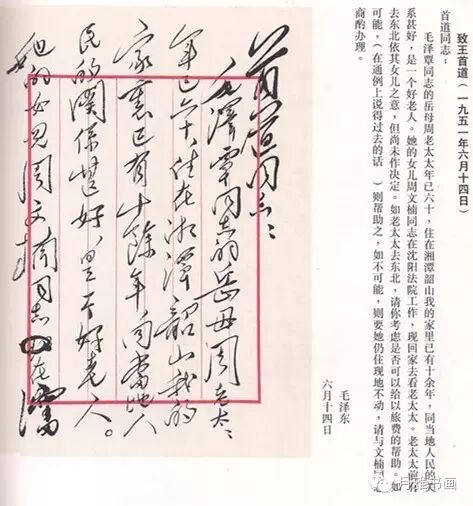 致王首道（一九五一年六月十四日）
首道同志：
毛泽覃同志的岳母周老太太年已六十，住在湘潭韶山我的家里已有十余年，同当地人民的关
系甚好，是一个好老人。她的女儿周文楠同志在沈阳法院工作，现回家去看老太太。老太太前有
去东北依其女儿之意，但尚未作决定。如老太太去东北，请你考虑是否可以给以旅费的帮助。如
可能，（在通例上说得过去的话　）则帮助之，如不可能，则要她仍住现地不动，请与文楠同
商酌办理。
毛泽东
六月十四日
首道同志：
毛澤覃同志的岳母周老太太
年已六十，住在湘潭韶山我的
家裏已有十餘年，同當地人
民的関係甚好，是一个好老人。
她的女兒周文楠同志在瀋
月雅书画